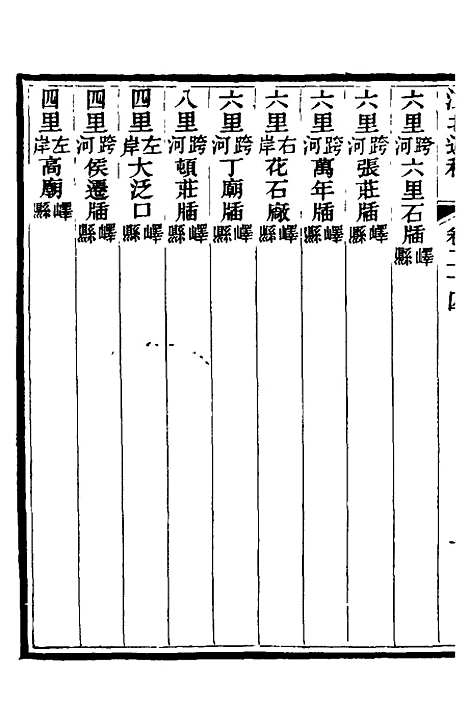 江北運程　卷二十四
六里跨河六里石牐嶧縣
六里跨河張莊牐嶧縣
六里跨河萬年牐嶧縣
六里右岸花石廠嶧縣
六里跨河丁廟牐嶧縣
八里跨河頓莊牐嶧縣
四里左岸大泛口嶧縣
四里跨河侯遷牐嶧縣
四里左岸高廟嶧縣